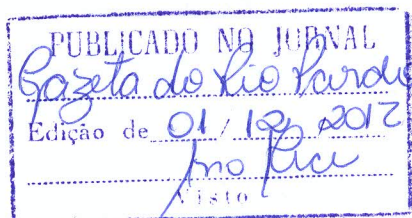 PUBLICADO NO JORNAL
Gazeta do Rio Pardo
Edição de 01 / 12 / 2012
Visto